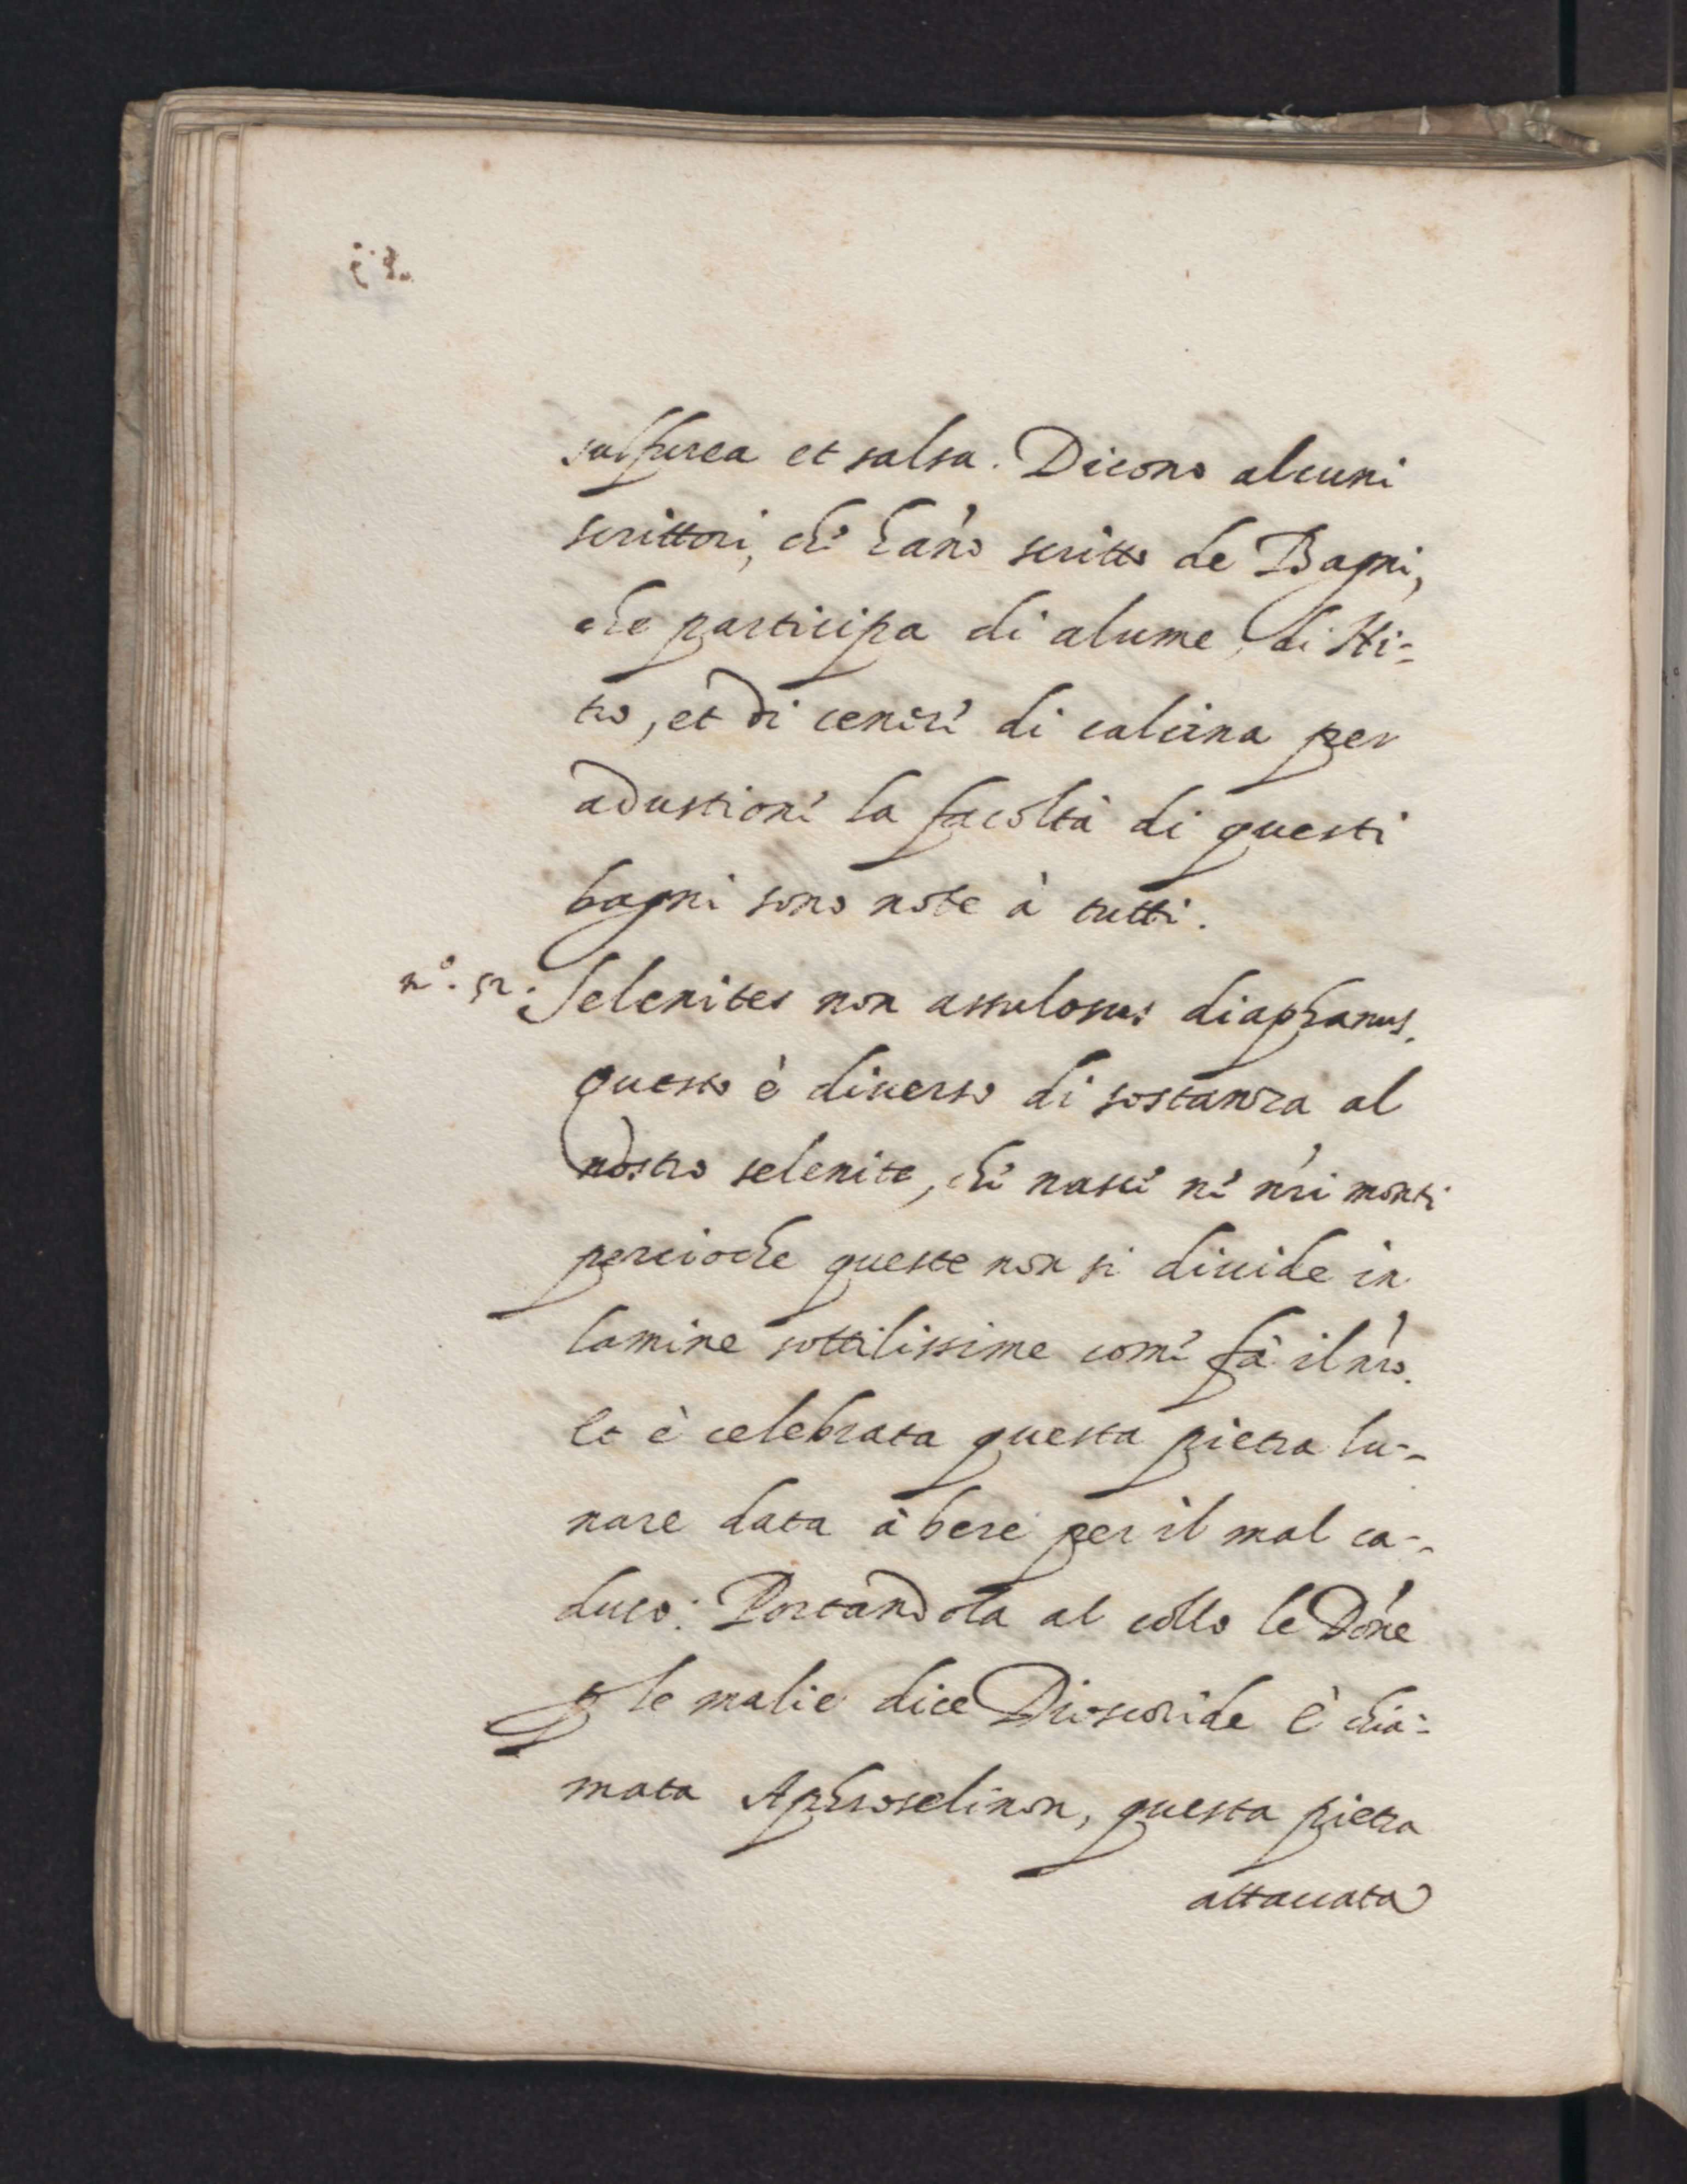 sulfurea et salsa. Dicono alcuni
scrittori, che há'no scritto de Bagni,
che participa di alume, di Ni=
tro, et di ceneri di calcina per
adustione la facoltà di questi
bagni sono note à tutti.
n.º 52. Selenites non assulosus diaphanus.
questo è diuerso di sostanza al
nostro selenite, che nasce ne n'ri monti
percioche queste non si diuide in
lamine sottilissime come fà il n'ro.
Et è celebrata questa pietra lu=
nare data à bere per il mal ca=
duco: Portandola al collo le Dóne
p le malie dice Dioscoride è chia=
mata Aphroselinon, questa pietra
attaccata